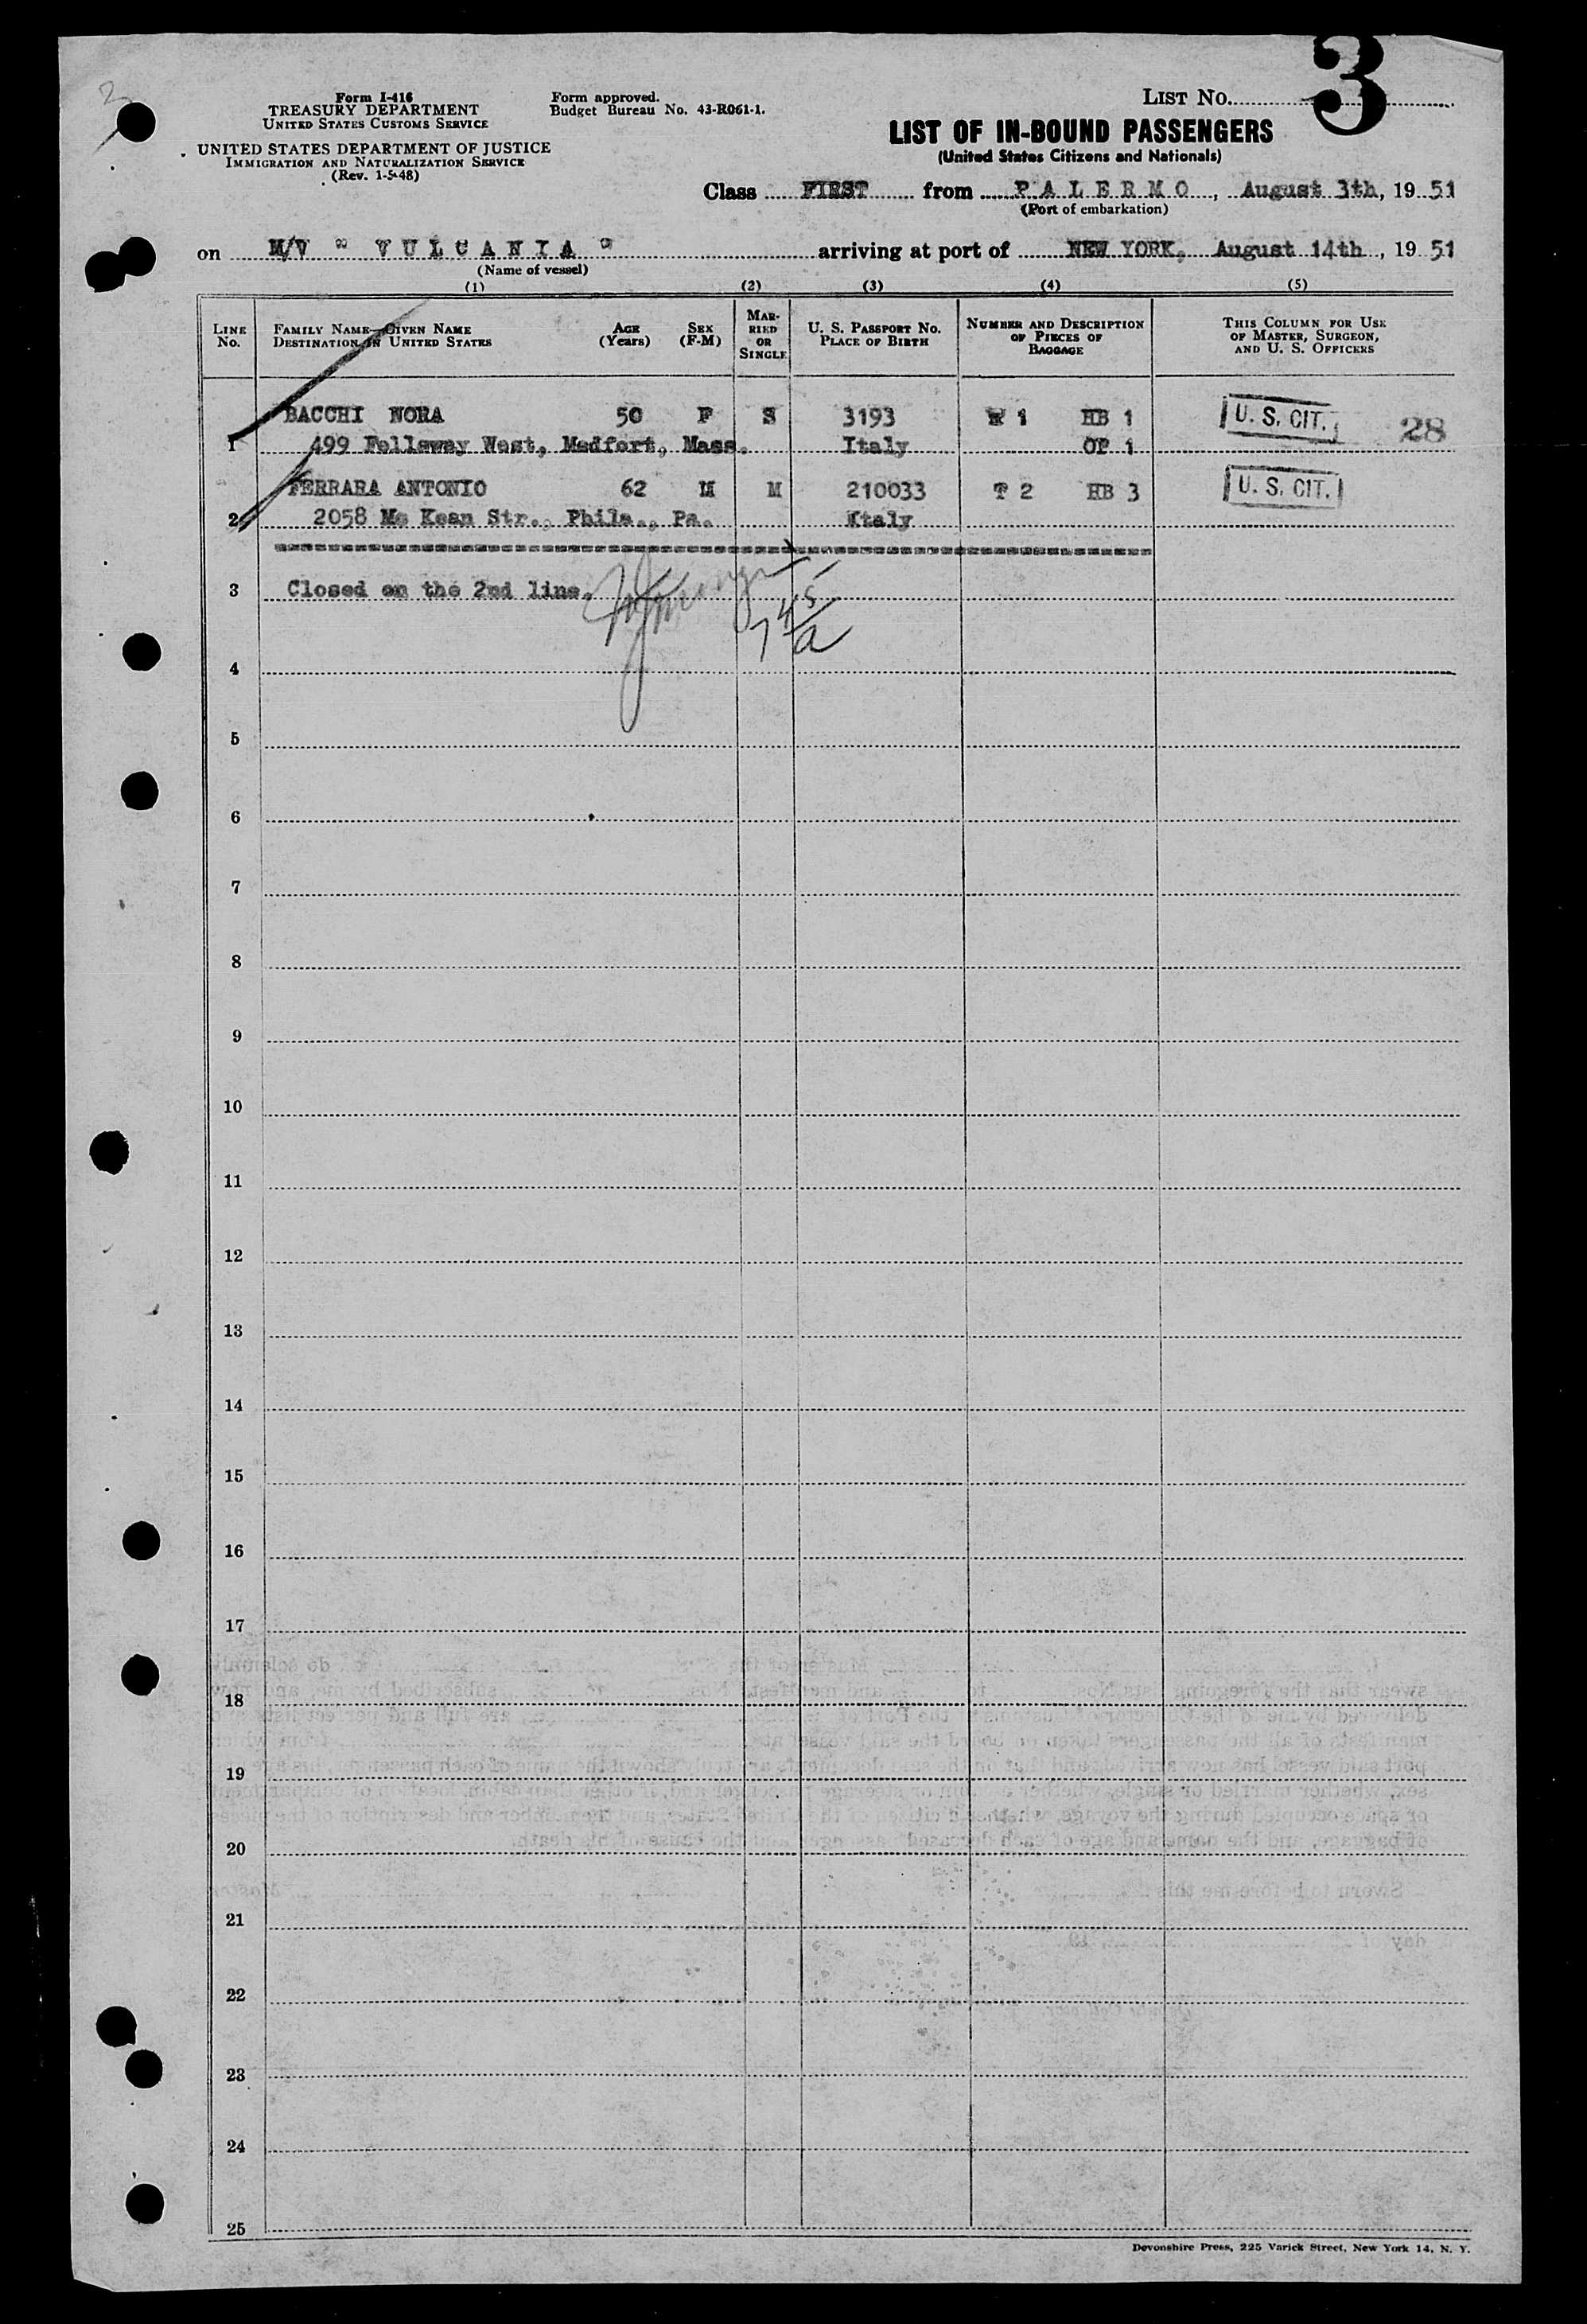 3
Form I-416
TREASURY DEPARTMENT
UNITED STATES CUSTOMS SERVICE
UNITED STATES DEPARTMENT OF JUSTICE
IMMIGRATION AND NATURALIZATION SERVICE
(Rev. 1-5-48)
Form approved.
Budget Bureau No. 43-R061-1.
LIST NO.
LIST OF IN-BOUND PASSENGERS
(United States Citizens and Nationals)
Class FIRST from PALERMO, August 3th, 19 51
(Port of embarkation)
on M/V " VULCANIA " arriving at port of NEW YORK, August 14th, 19 51
(Name of vessel)
(1) (2) (3) (4) (5)
LINE NO.
FAMILY NAME—GIVEN NAME
DESTINATION IN UNITED STATES
AGE (Years)
SEX (F-M)
MARRIED OR SINGLE
U. S. PASSPORT NO.
PLACE OF BIRTH
NUMBER AND DESCRIPTION OF PIECES OF BAGGAGE
THIS COLUMN FOR USE OF MASTER, SURGEON, AND U. S. OFFICERS
BACCHI NORA 50 F S 3193 1 HB 1 U. S. CIT. 28
1 499 Fellsway West, Medfort, Mass. Italy OP 1
FERRARA ANTONIO 62 M M 210033 T 2 HB 3 U. S. CIT.
2 2058 Mc Kean Str., Phila., Pa. Italy
3 Closed on the 2nd line.
4
5
6
7
8
9
10
11
12
13
14
15
16
17
18
19
20
21
22
23
24
25
Devonshire Press, 225 Varick Street, New York 14, N. Y.